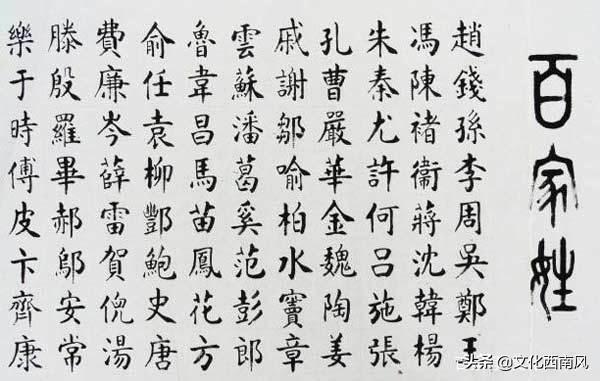 百家姓
趙錢孫李周吳鄭王
馮陳褚衞蔣沈韓楊
朱秦尤許何呂施張
孔曹嚴華金魏陶姜
戚謝鄒喻柏水竇章
雲蘇潘葛奚范彭郎
魯韋昌馬苗鳳花方
俞任袁柳酆鮑史唐
費廉岑薛雷賀倪湯
滕殷羅畢郝鄔安常
樂于時傅皮卞齊康
头条 @文化西南风